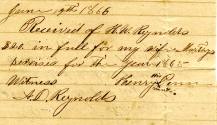 June 19th 1866
Received of H. W. Reynolds
$20. in full for my wife
services for the year 1865
Witness Henry Penn
A. D. Reynolds